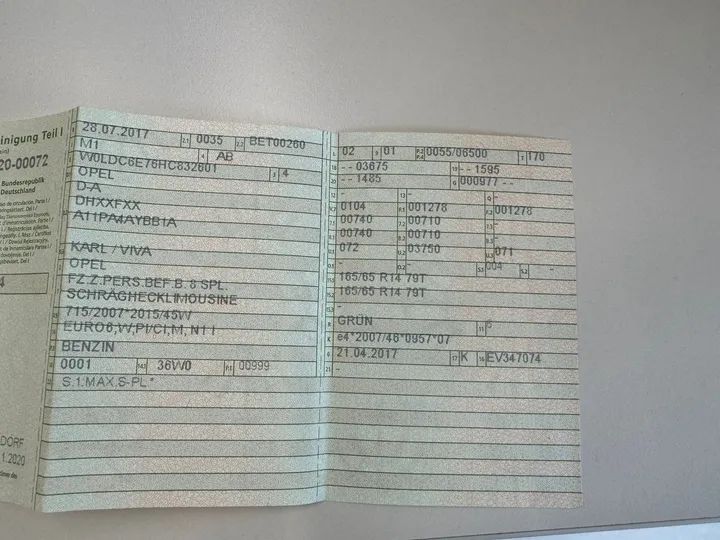 inigung Teil I
20-00072
Bundesrepublik
Deutschland
4
DORF
1.2020
28.07.2017 2.1 0035 2.2 BET00260
M1 4 AB
W0LDC6E76HC832601 3 4
OPEL
D-A
DHXXFXX
A11PA4AYBB1A
KARL / VIVA
OPEL
FZ.Z.PERS.BEF.B. 8 SPL.
SCHRÄGHECKLIMOUSINE
715/2007*2015/45W
EURO6,W,PI/CI,M, N1 I
BENZIN
0001 14.1 36W0 P.1 00999
S.1:MAX.S-PL*
02 9 01 P.2 P.4 0055/06500 T 170
18 - - 03675 19 - - 1595
20 - - 1485 G 000977 - -
12 - 13 - Q -
0104 F.1 001278 F.2 001278
00740 00710
00740 00710
072 U.2 03750 071
- O.2 - S.1 004 S.2 -
165/65 R14 79T
165/65 R14 79T
-
R GRÜN 11
K e4*2007/46*0957*07
6 21.04.2017 17 K 16 EV347074
21 -